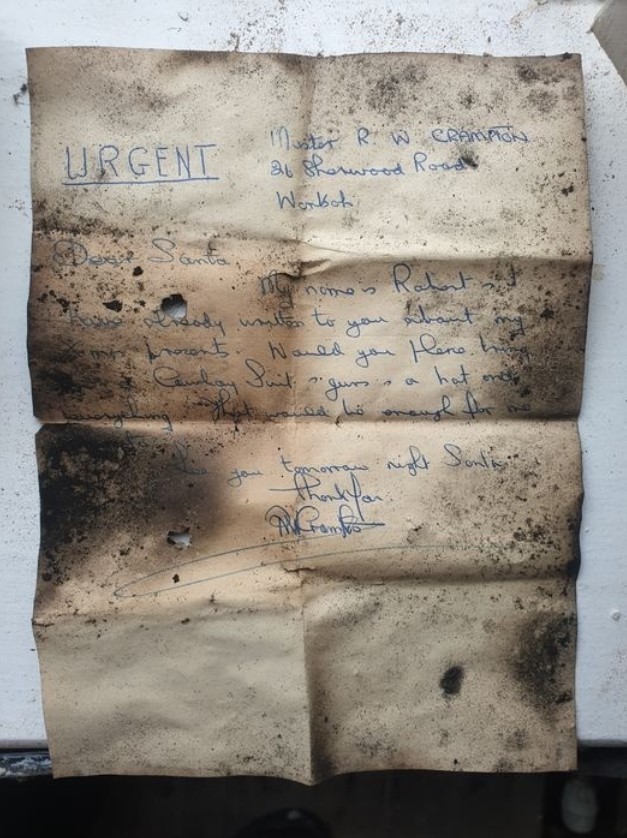 URGENT
Master R. W CRAMPTON
26 Sherwood Road
Worksop
Dear Santa
My name is Robert & I
have already written to you about my
Xmas presents. Would you Please bring
Cowboy Suit & guns & a hat and
everything That would be enough for me
See you tomorrow night Santa
Thankyou
RWCrampton